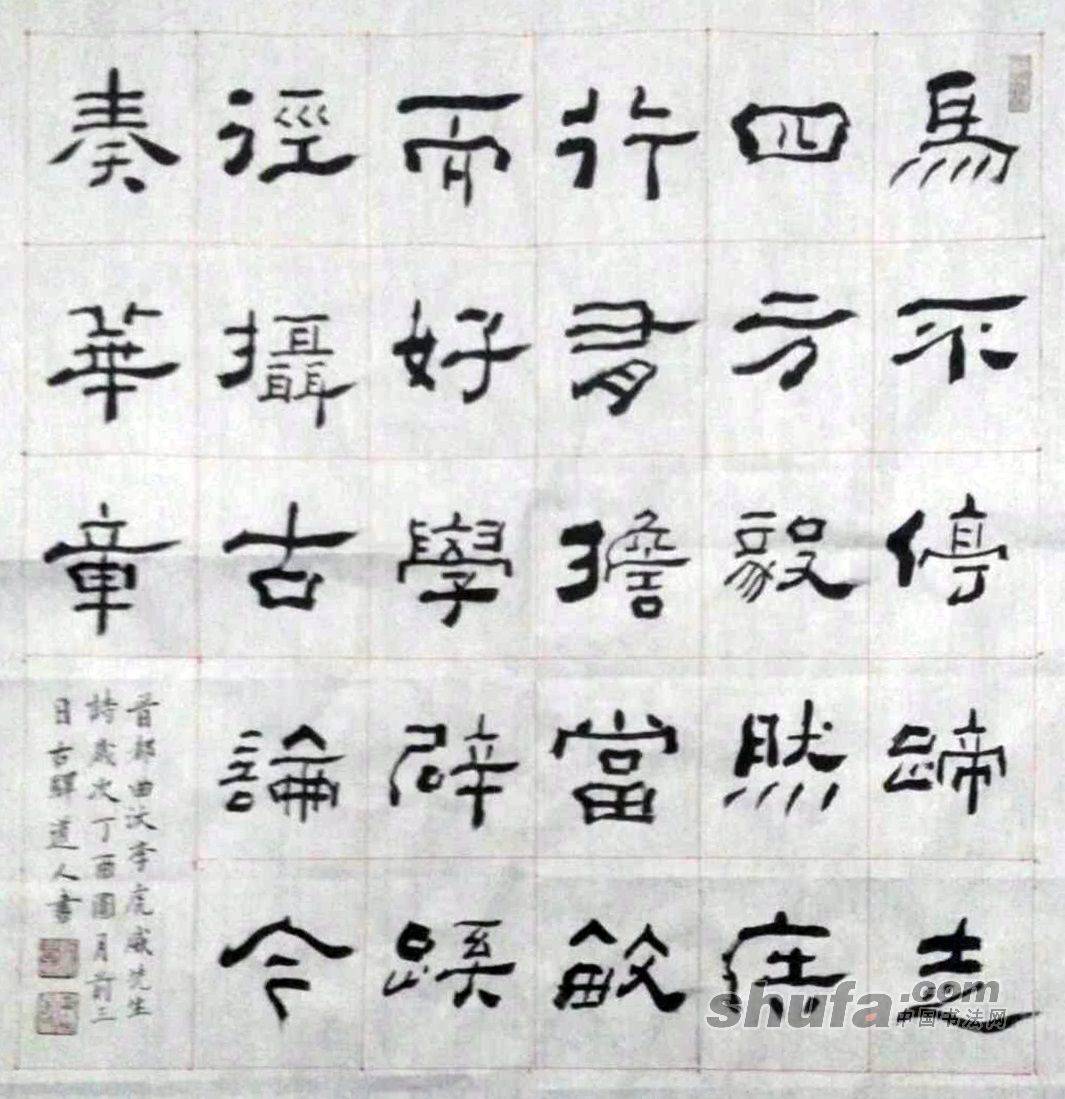 馬不停蹄志
四方毅然應
行勇擔當敏
而好學辟蹊
徑攝古論今
奏華章
晋都曲沃李虎威先生
詩歲次丁酉圍月前三
日古驛道人書
shufa.com
中国书法网